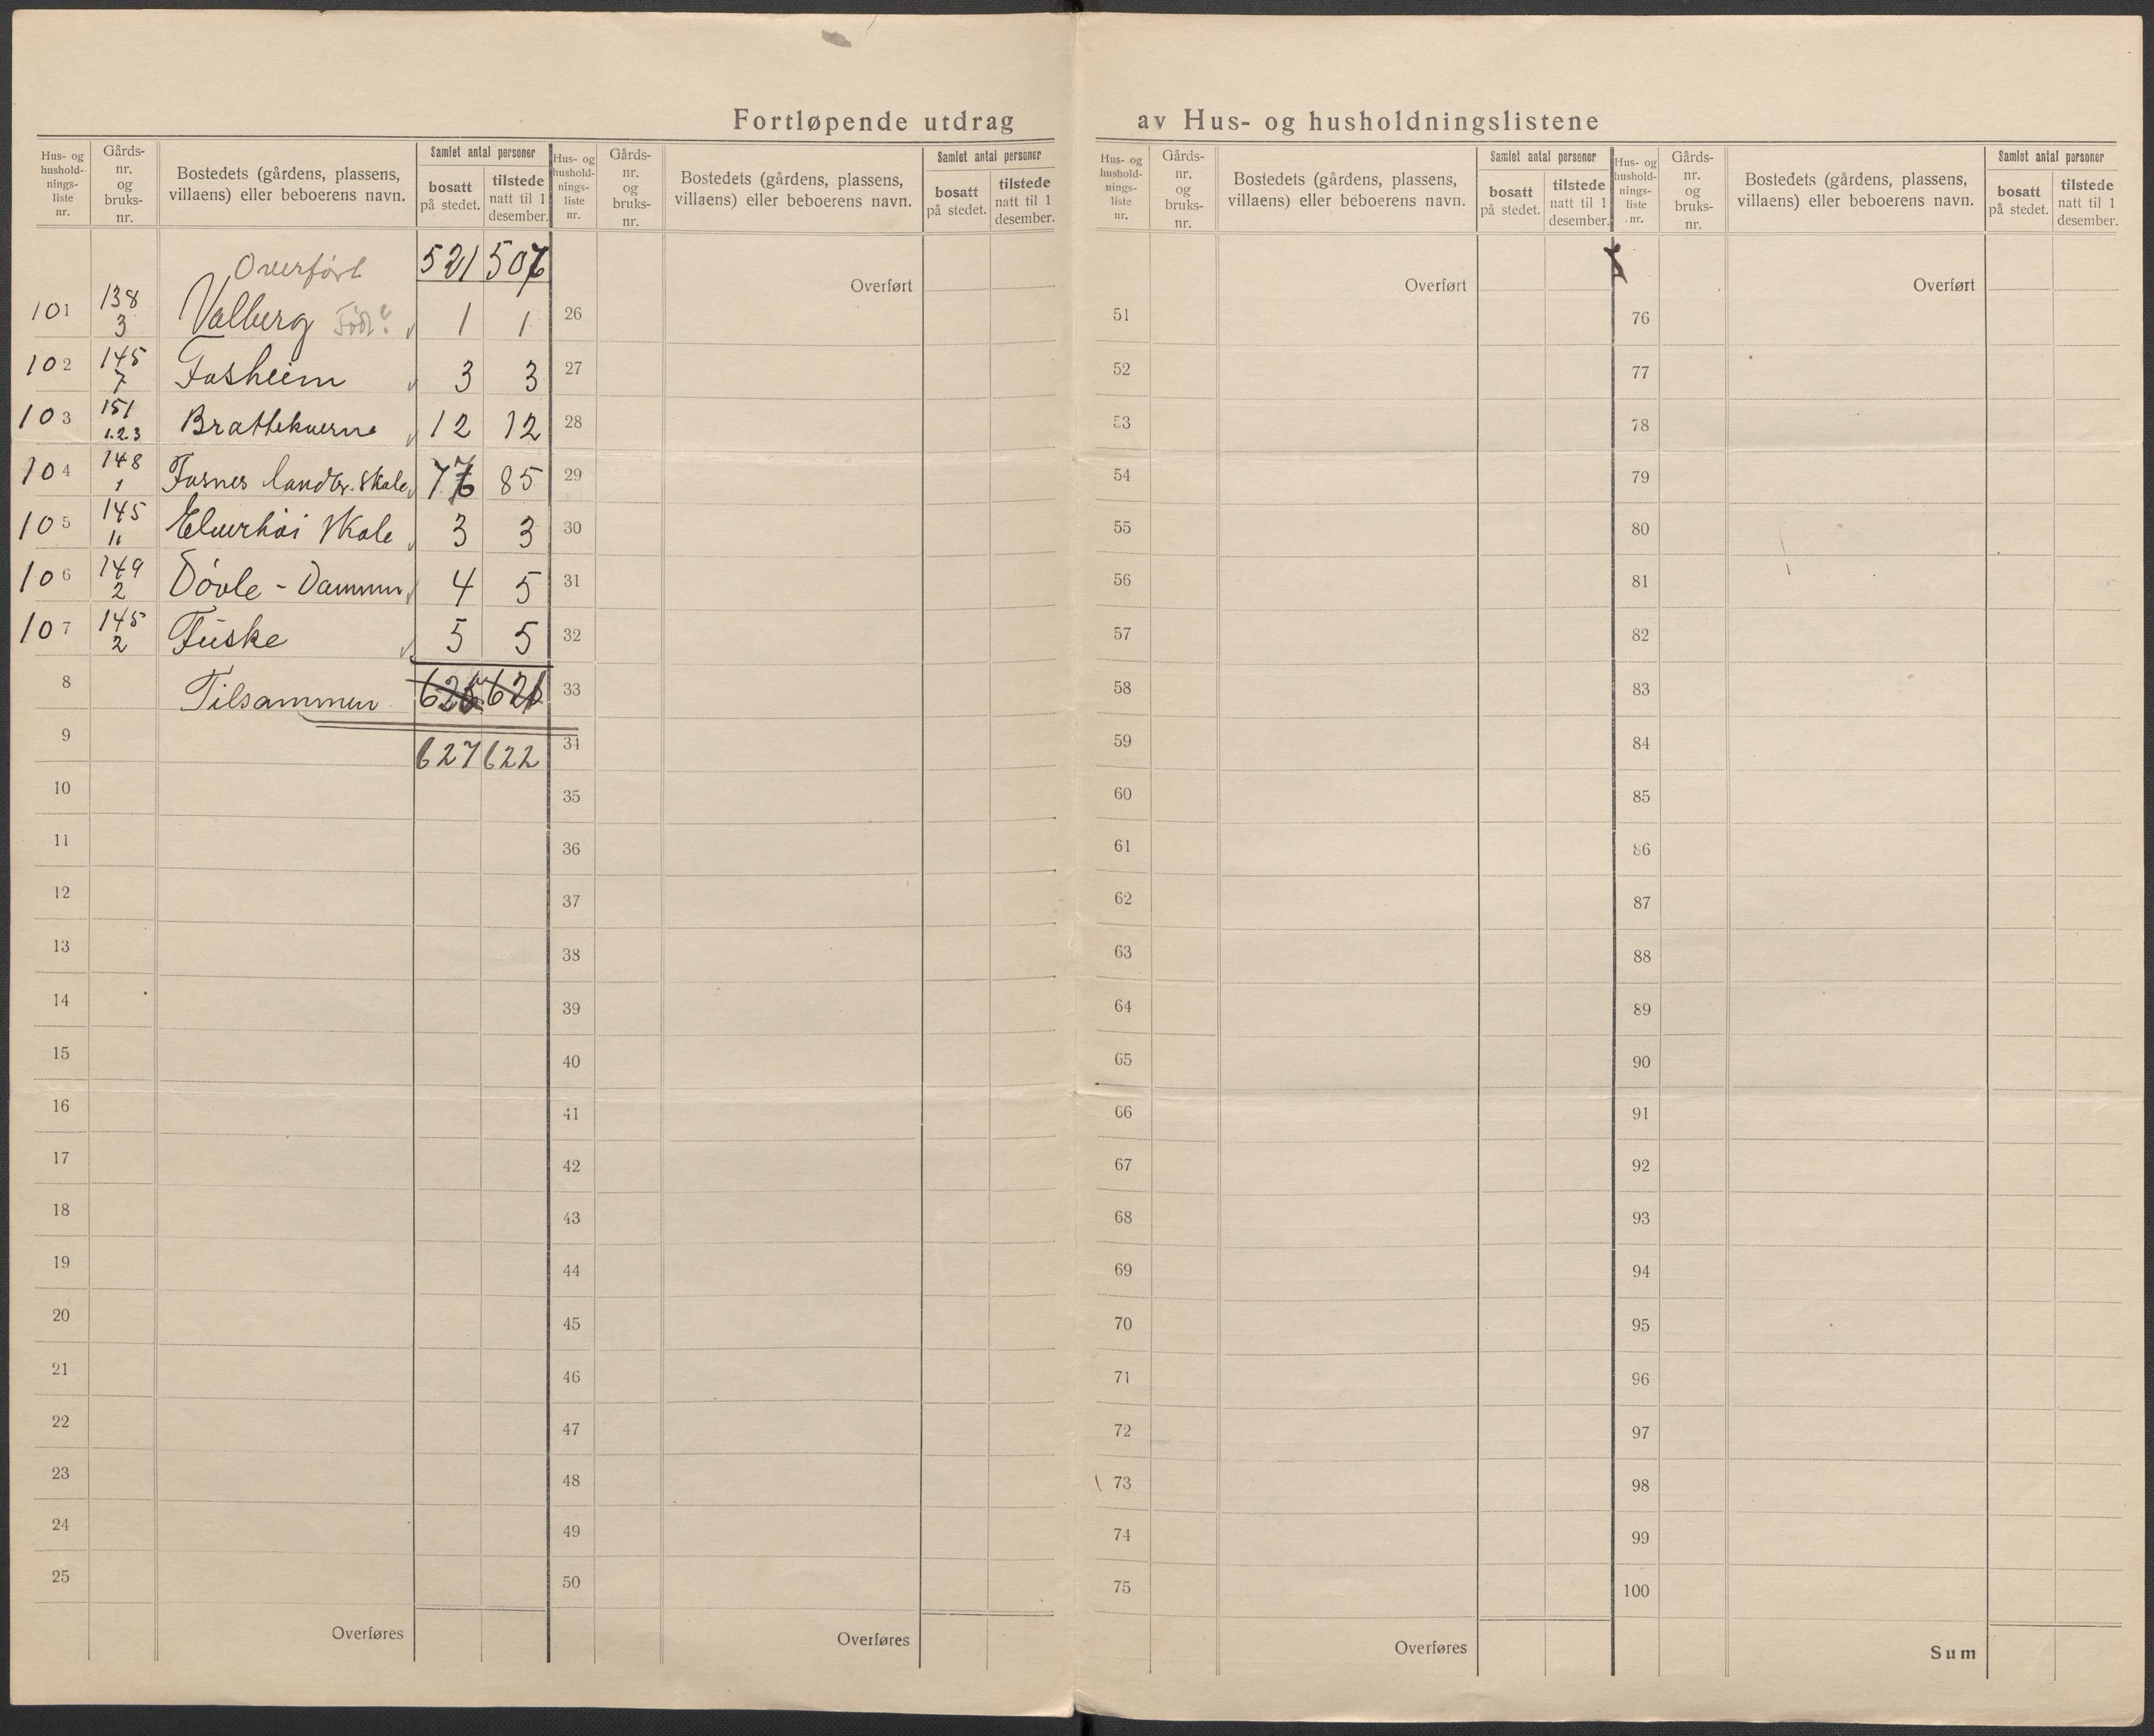 Fortløpende utdrag av Hus- og husholdningslistene
Hus- og hushold- nings- liste nr.
Gårds- nr. og bruks- nr.
Bostedets (gårdens, plassens, villaens) eller beboerens navn.
Samlet antal personer
bosatt på stedet.
tilstede natt til 1 desember.
Overført 521 507
101 138 3 Valberg Född? 1 1
102 145 7 Fosheim 3 3
103 151 1.2.3 Brattekverne 12 12
104 148 1 Fosnes landbr. skole 77 85
105 145 11 Elverhöi Skole 3 3
106 149 2 Dövle - Dammen 4 5
107 145 2 Fuske 5 5
8 Tilsammen 626 621
9 627 622
10
11
12
13
14
15
16
17
18
19
20
21
22
23
24
25
Overføres
Hus- og hushold- nings- liste nr.
Gårds- nr. og bruks- nr.
Bostedets (gårdens, plassens, villaens) eller beboerens navn.
Samlet antal personer
bosatt på stedet.
tilstede natt til 1 desember.
Overført
26
27
28
29
30
31
32
33
34
35
36
37
38
39
40
41
42
43
44
45
46
47
48
49
50
Overføres
Hus- og hushold- nings- liste nr.
Gårds- nr. og bruks- nr.
Bostedets (gårdens, plassens, villaens) eller beboerens navn.
Samlet antal personer
bosatt på stedet.
tilstede natt til 1 desember.
Overført
51
52
53
54
55
56
57
58
59
60
61
62
63
64
65
66
67
68
69
70
71
72
73
74
75
Overføres
Hus- og hushold- nings- liste nr.
Gårds- nr. og bruks- nr.
Bostedets (gårdens, plassens, villaens) eller beboerens navn.
Samlet antal personer
bosatt på stedet.
tilstede natt til 1 desember.
Overført
76
77
78
79
80
81
82
83
84
85
86
87
88
89
90
91
92
93
94
95
96
97
98
99
100
Sum